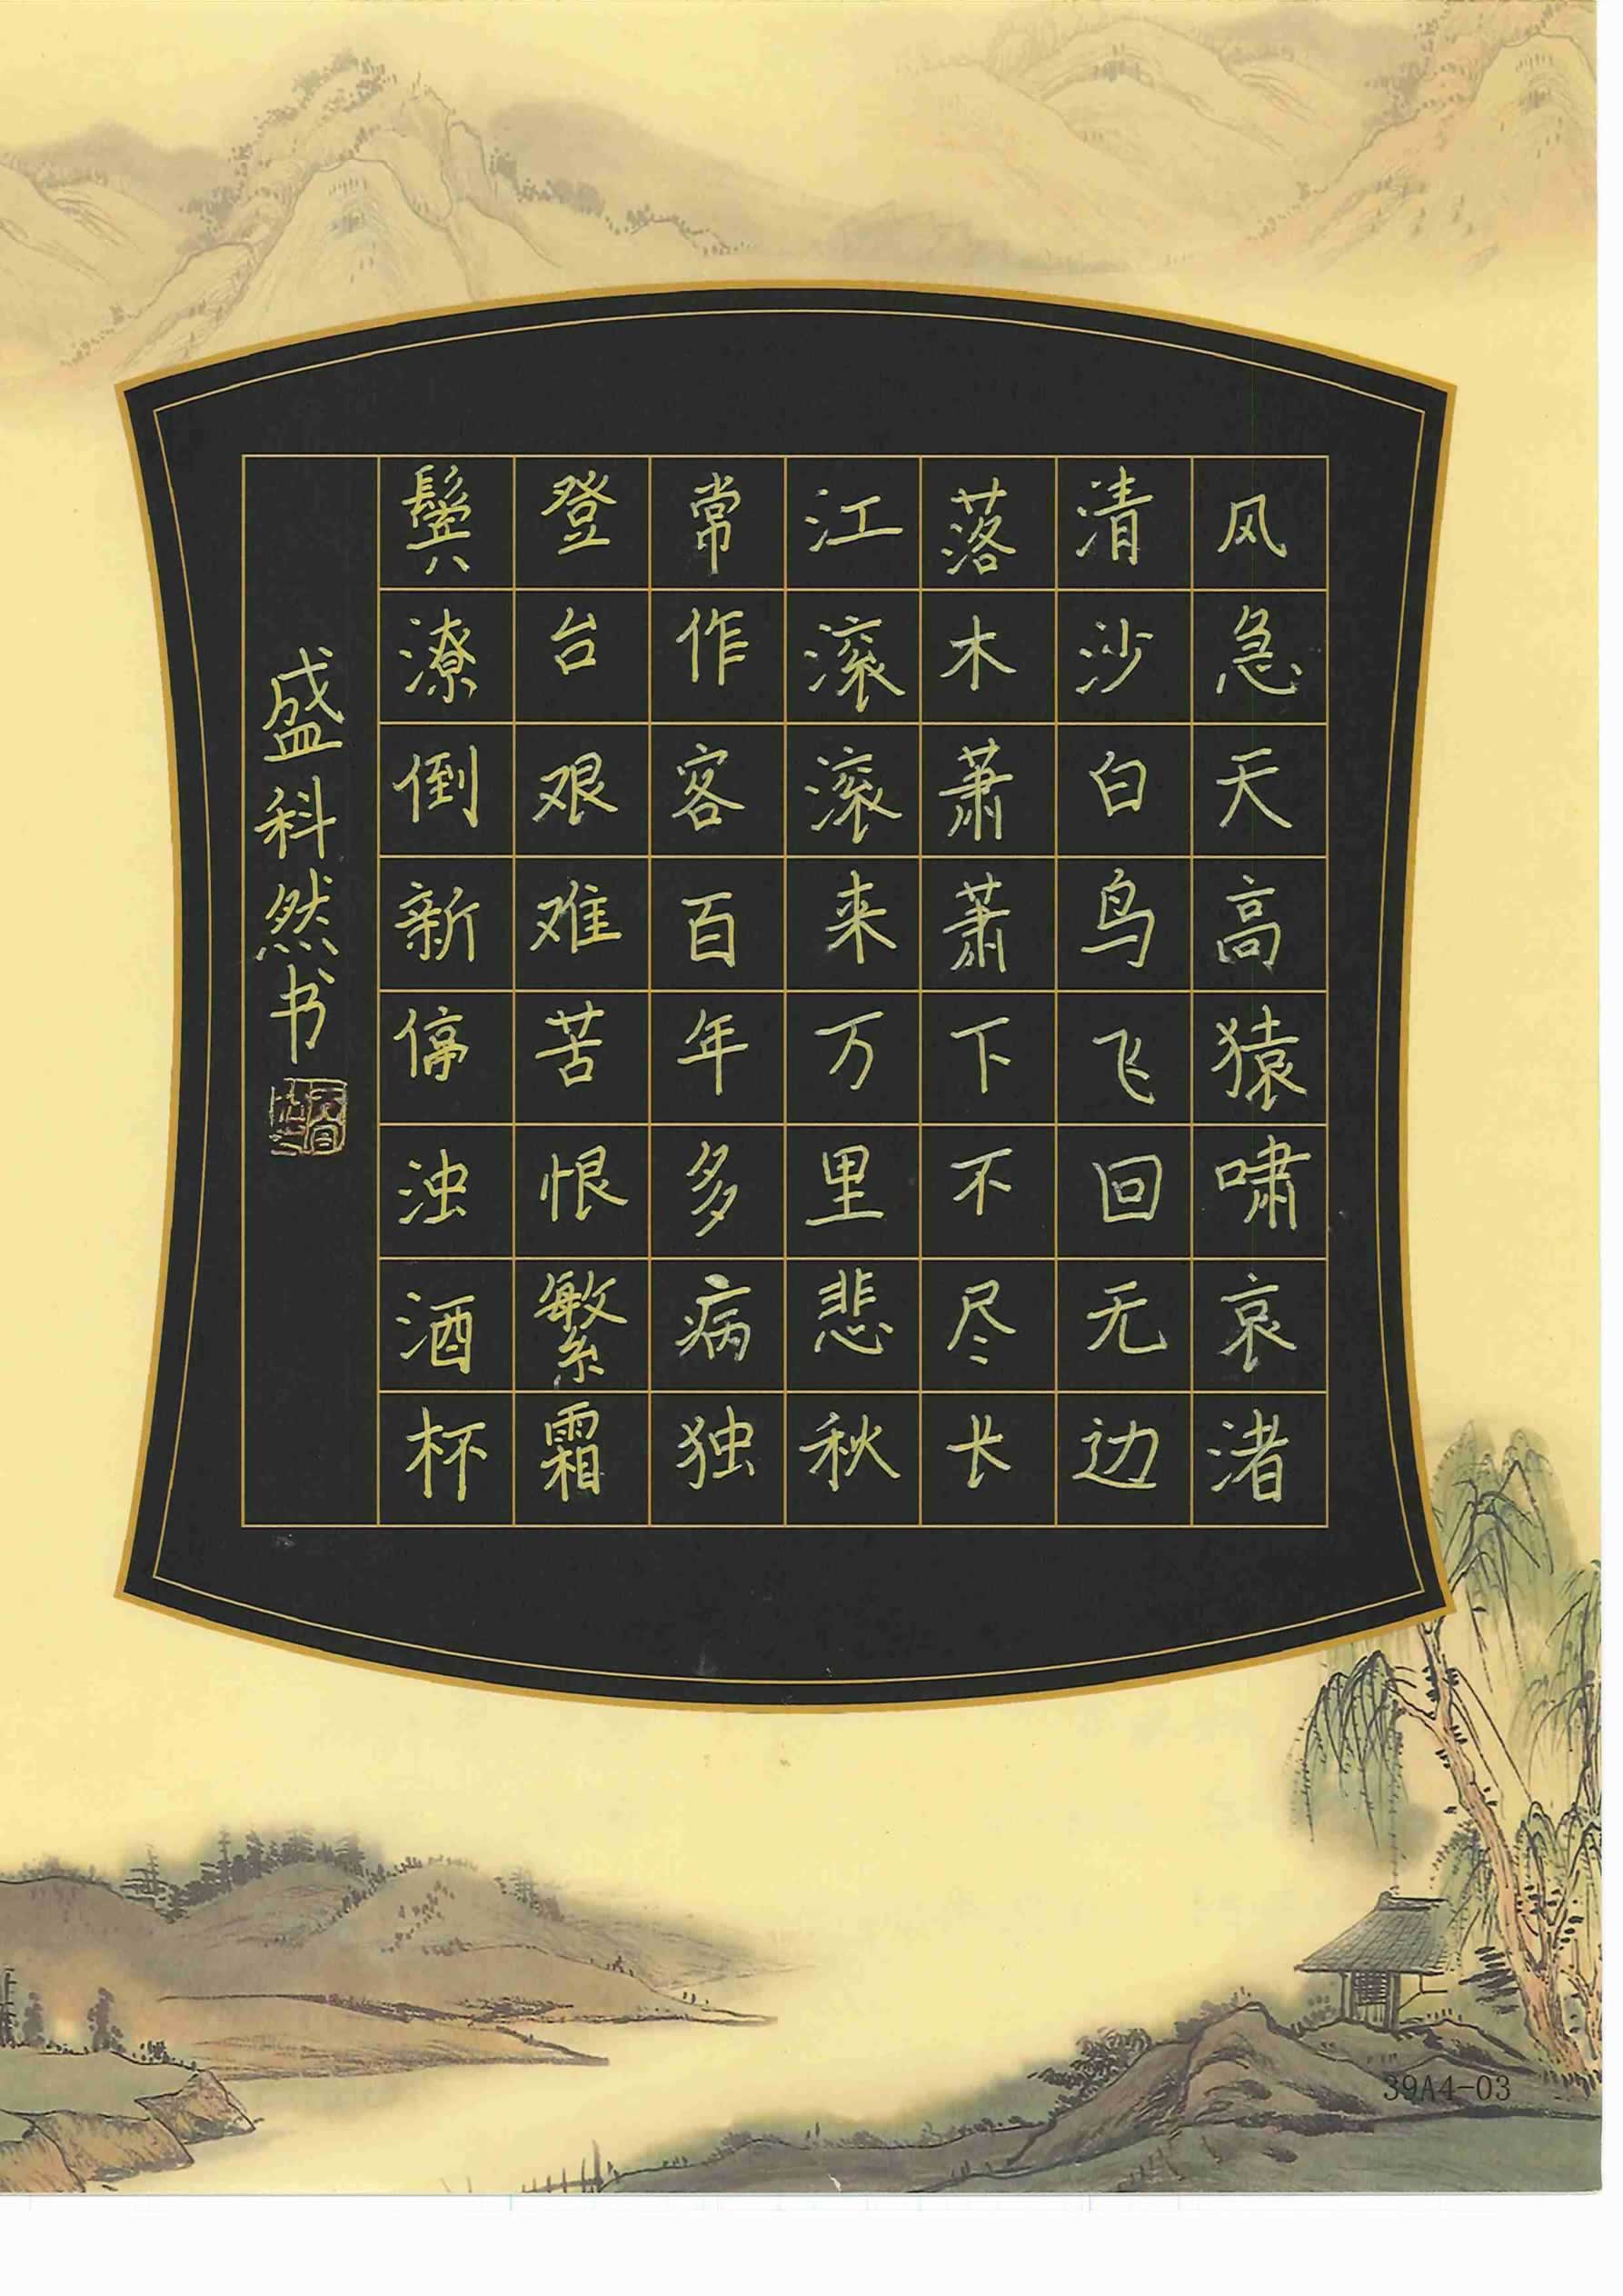 风急天高猿啸哀渚
清沙白鸟飞回无边
落木萧萧下不尽长
江滚滚来万里悲秋
常作客百年多病独
登台艰难苦恨繁霜
鬓潦倒新停浊酒杯
盛科然书
39A4-03